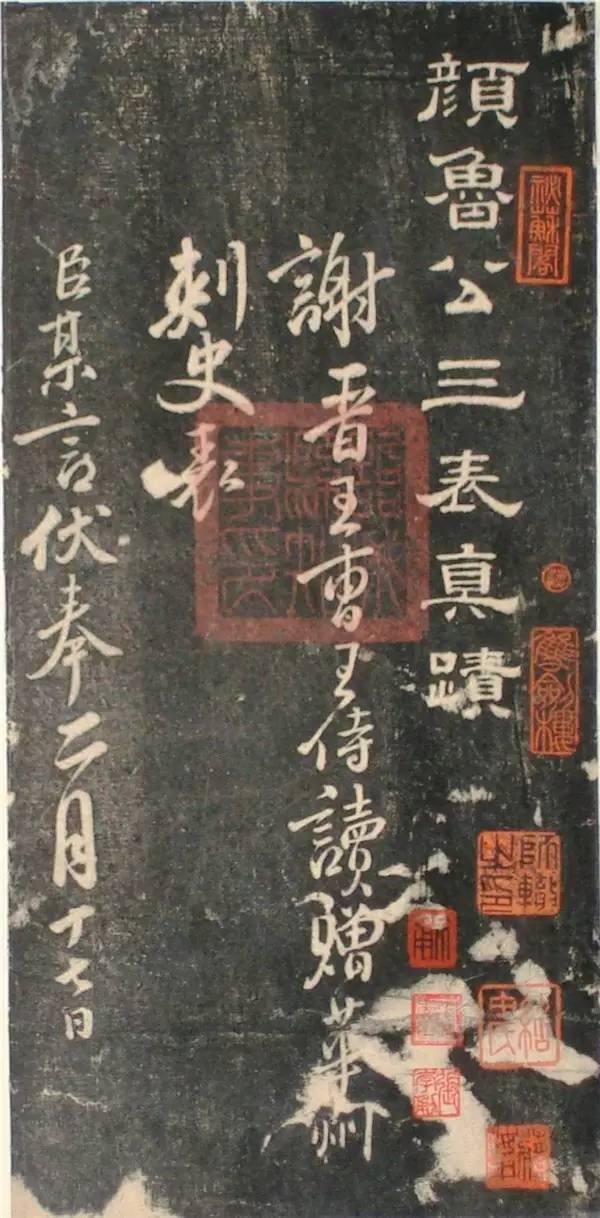 顏魯公三表真蹟
謝晉王曹王侍讀贈華州
刺史表
臣某言伏奉二月十七日
雙劍樓
師轍之印